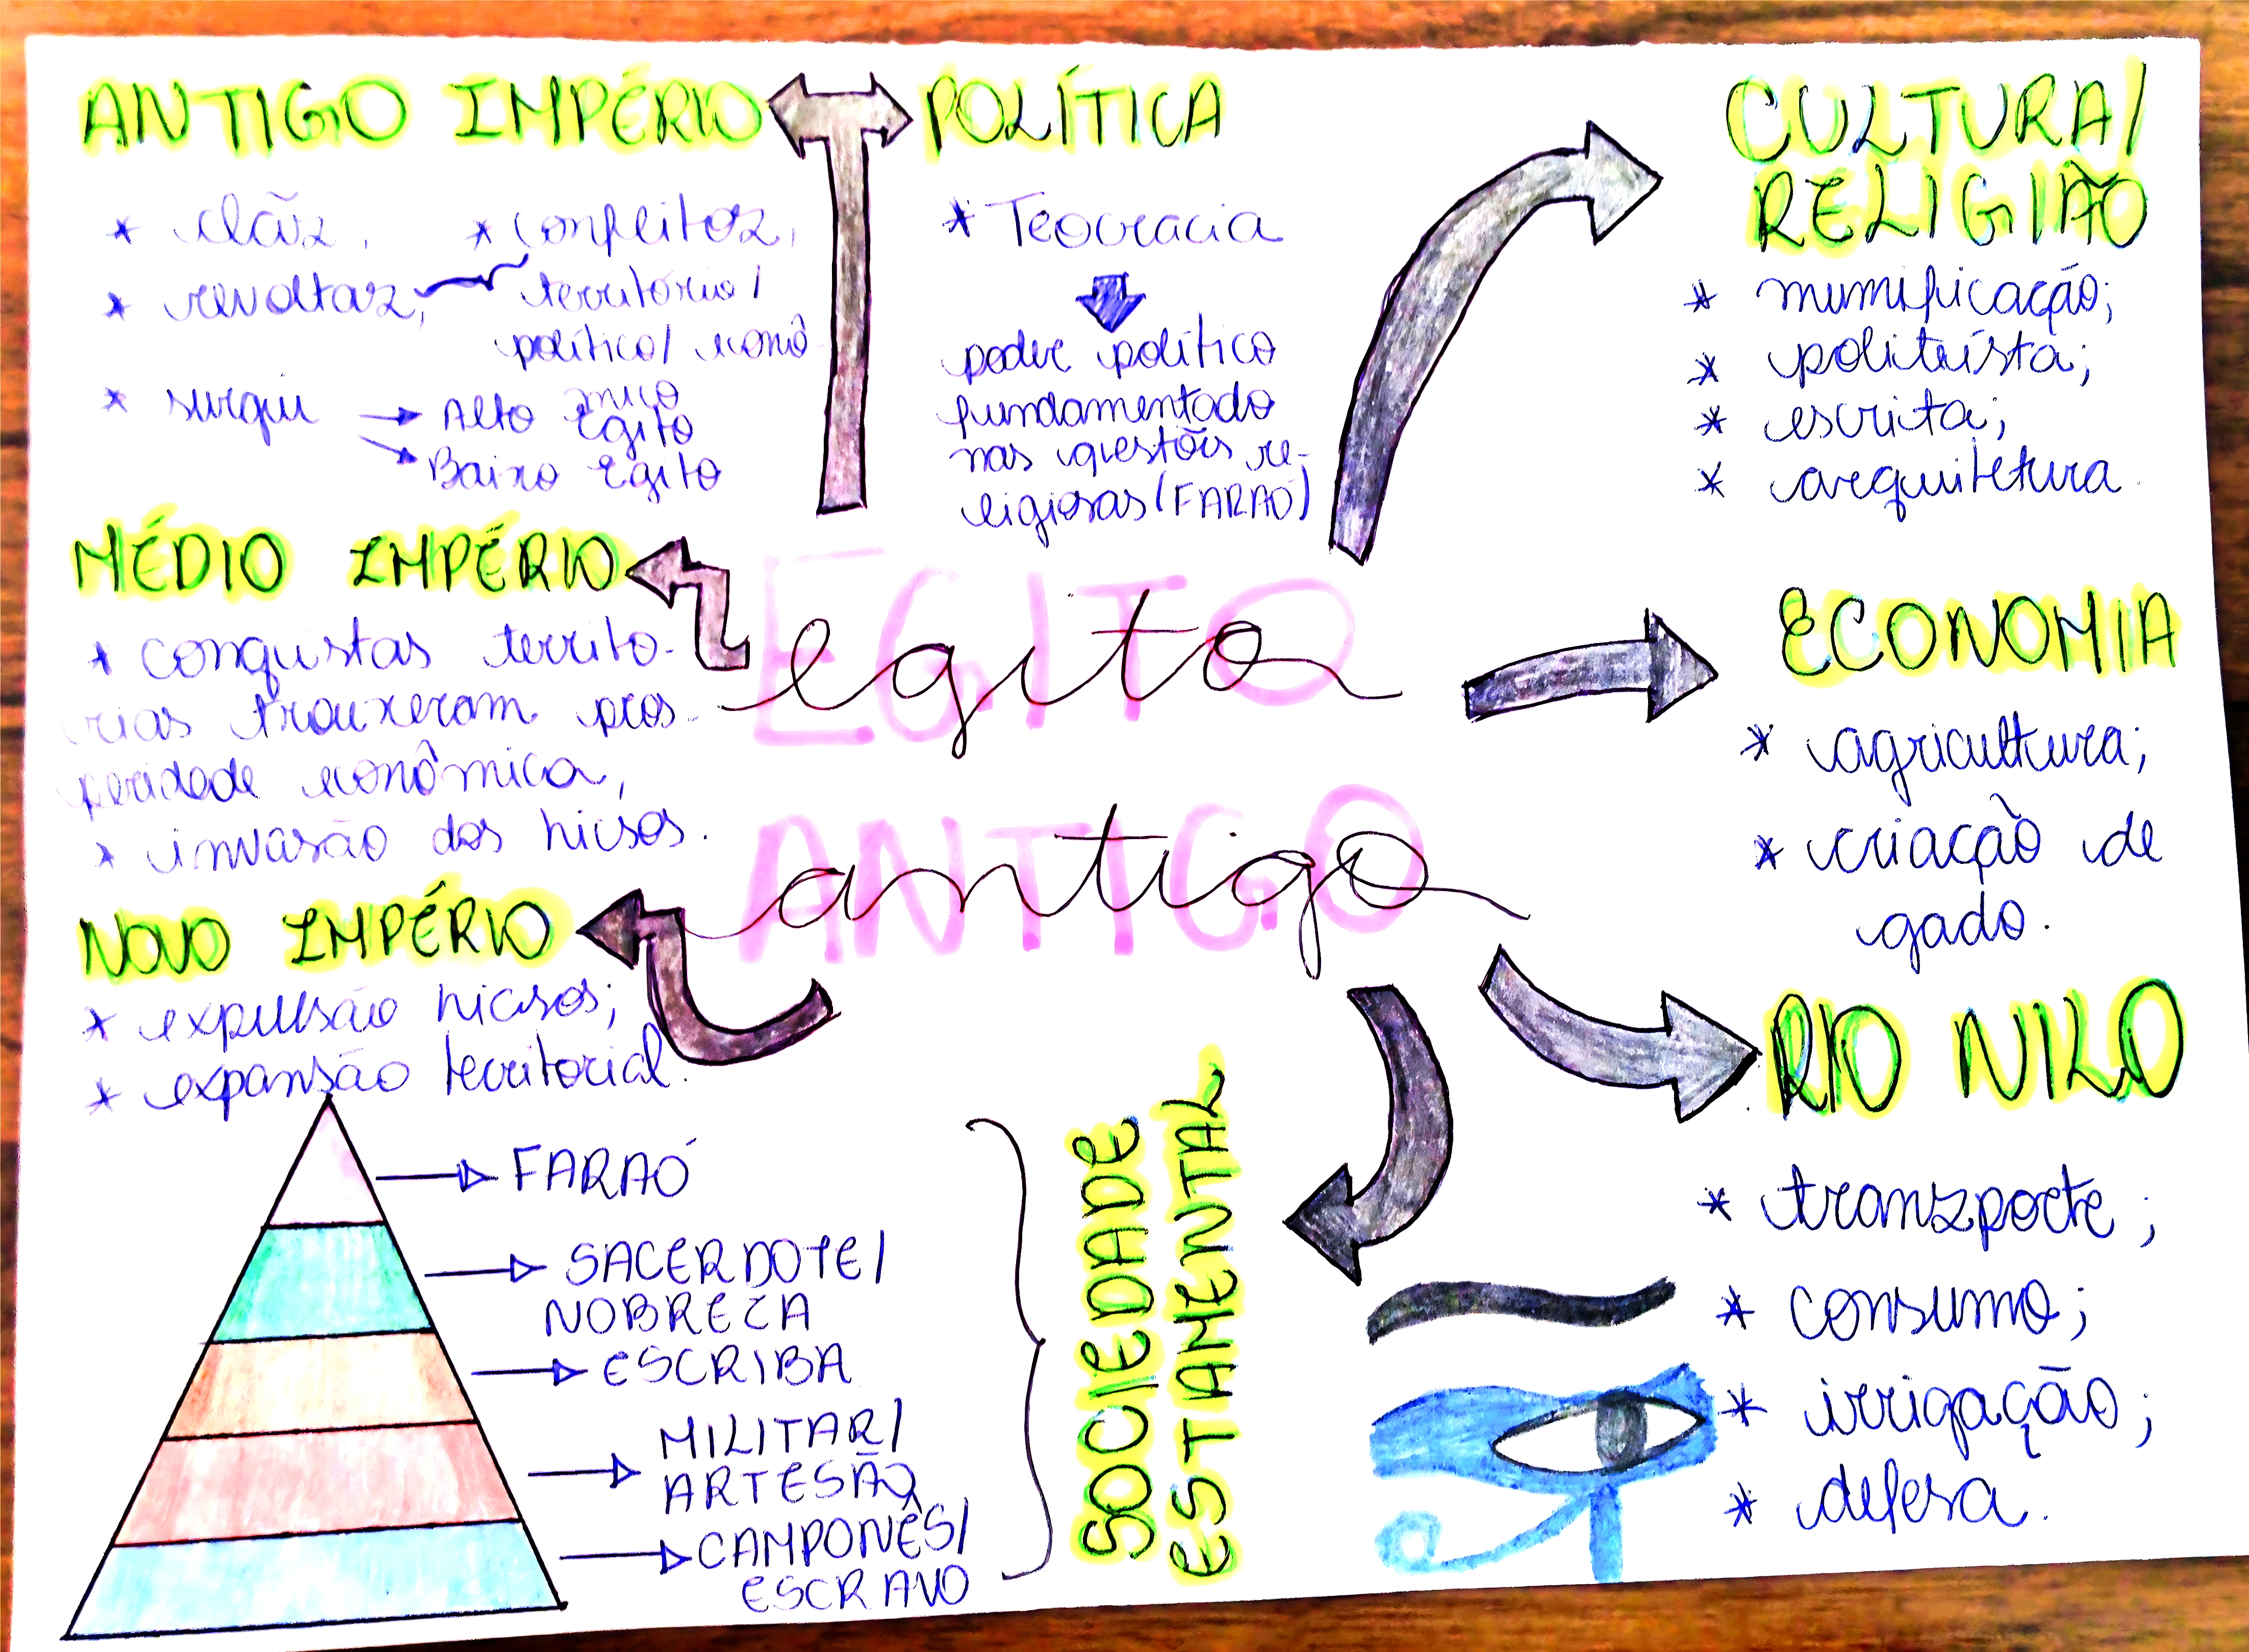 ANTIGO IMPÉRIO
* clãs,
* conflitos,
* revoltas,
território/
político/ econô
mico
* surgir → Alto Egito
→ Baixo Egito
POLÍTICA
* Teocracia
poder político
fundamentado
nas questões re-
ligiosas (FARAÓ)
CULTURA/
RELIGIÃO
* mumificação;
* politeísta;
* escrita;
* arquitetura.
MÉDIO IMPÉRIO
* conquistas territo-
rias trouxeram pros-
peridade econômica,
* invasão dos hicsos.
EGITO
egito
ANTIGO
antigo
ECONOMIA
* agricultura;
* criação de
gado.
NOVO IMPÉRIO
* expulsão hicsos;
* expansão territorial.
RIO NILO
* transporte;
* consumo;
* irrigação;
* defesa.
FARAÓ
SACERDOTE/
NOBREZA
ESCRIBA
MILITAR/
ARTESÃO
CAMPONÊS/
ESCRAVO
SOCIEDADE
ESTAMENTAL